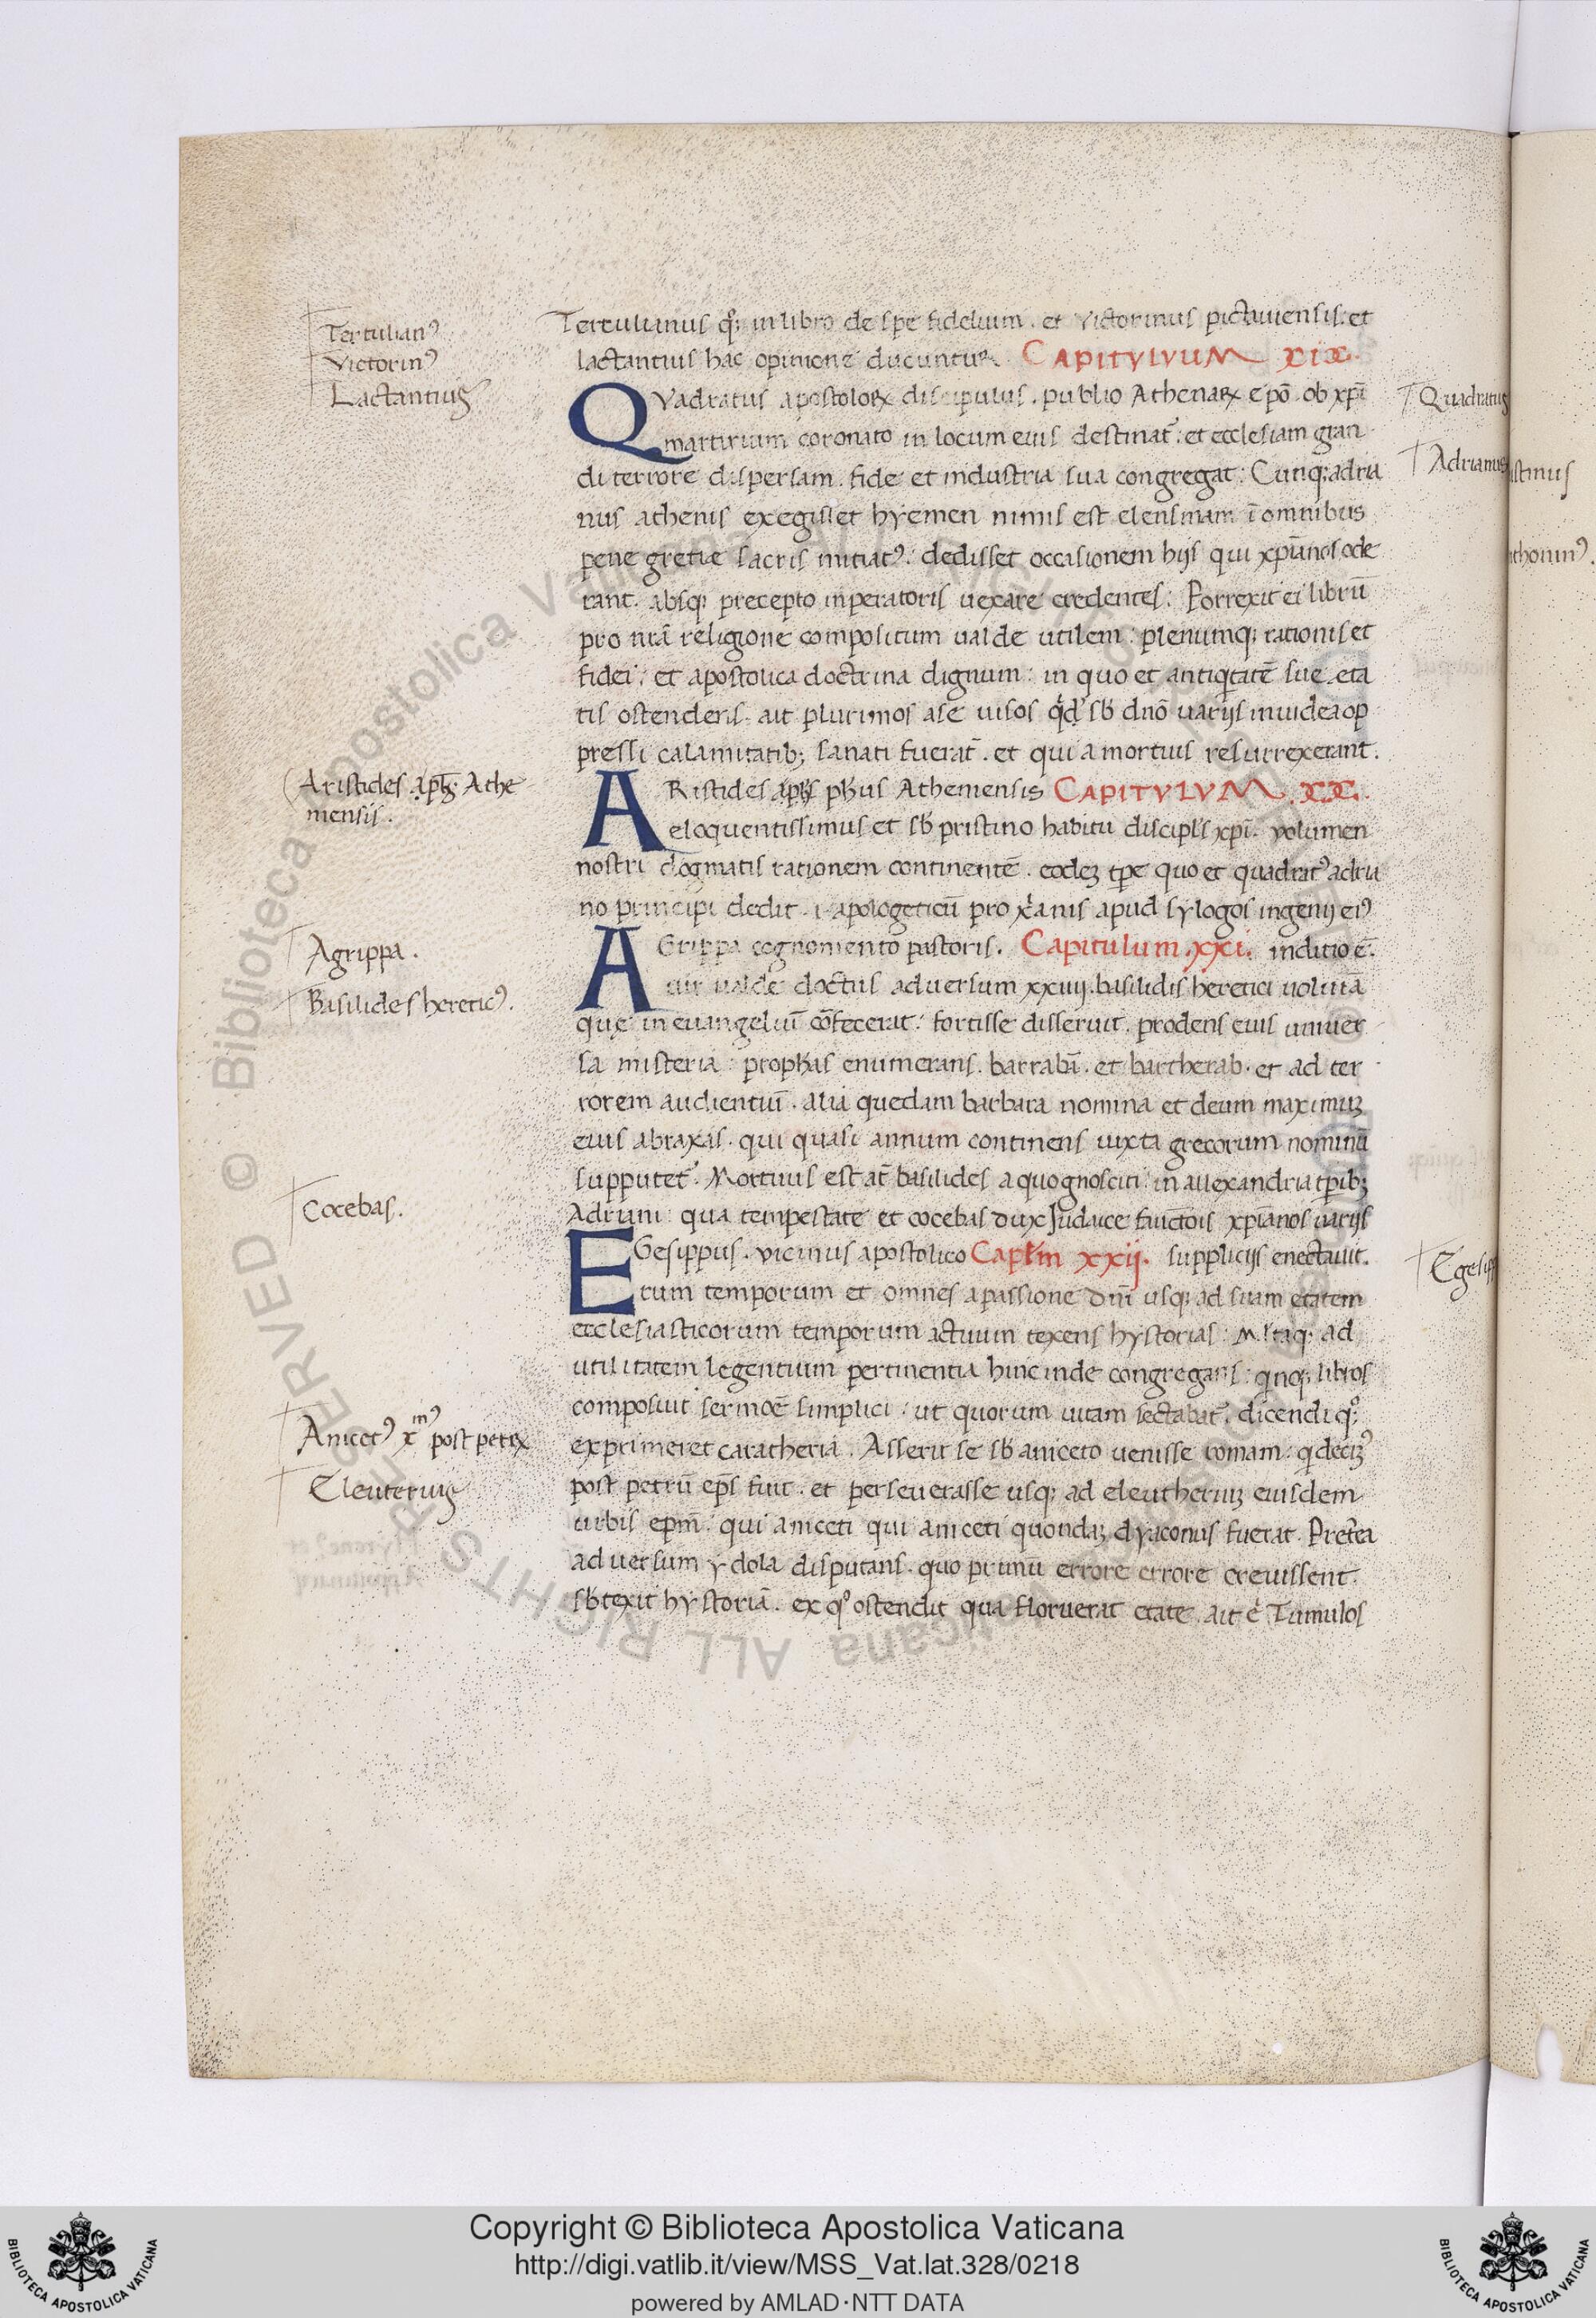 Tertulianus qꝫ in libro de spe fidelium. et victorinus pictauiensis. et
lactantius hac opinione ducuntur. CAPITVLVUM XIX.
QVadratus apostoloꝝ discipulus. publio Athenaꝝ epō. ob xpī
martirium coronato in locum eius destinat. et ecclesiam gran
di terrore dispersam. fide et industria sua congregat. Cunqꝫ adria
nus athenis exegisset hyemen nimis est elensinam ī omnibus
pene gretie sacris initiatꝰ. dedisset occasionem hijs qui xpīanos ode
rant. absqꝫ precepto inperatoris uexare credentes. Porrexit ei librū
pro nrā religione compositum ualde utilem. plenumqꝫ rationis et
fidei. et apostolica doctrina dignum. in quo et antiqtatē sue eta
tis ostenderis. ait plurimos a se uisos qd sb dnō uarijs in iudea op
pressi calamitatibꝫ sanati fuerāt. et qui a mortuis resurrexerant.
ARistides phus Atheniensis CAPITVLVM .XX.
eloquentissimus et sb pristino habitu discipls xpī. volumen
nostri dogmatis rationem continentē. eodeꝫ tpe quo et quadratꝰ adria
no principi dedit. i. apologeticū pro xanis apud sylogos ingenij eiꝰ
AGrippa cognomento pastoris. Capitulum .xxi. inditio ē.
uir ualde doctus aduersum xxiiij. basilidis heretici uolumā
que in euangeliū cōfecerat. fortisse disseruit. prodens eius uniuer
sa misteria. prophas enumerans. barrabā. et bartherab. et ad ter
rorem audientiū. alia quedam barbara nomina et deum maximuꝫ
eius abraxas. qui quasi annum continens iuxta grecorum nominū
supputet. Mortuus est āt basilides a quo gnosciti in allexandria tpibꝫ
Adriani qua tempestate et cocebas dux Iudaice xpīanos uarijs
EGesippus. vicinus apostolico Caplm xxij. supplicijs enectauit.
rum temporum et omnes a passione dnī usqꝫ ad suam etatem
ecclesiasticorum temporum actuum texens hystorias. Mltaqꝫ ad
utilitatem legentium pertinentia hinc inde congregans. qnqꝫ libros
composuit sermōe simplici. ut quorum uitam sectabat. dicendi qꝫ
exprimeret caratheria. Asserit se sb aniceto uenisse romam. q deciꝫꝰ
post petrū eps fuit. et perseuerasse usqꝫ ad eleutheriuꝫ eiusdem
urbis epm. qui aniceti qui aniceti quondaꝫ dyaconus fuerat. Pretea
aduersum ydola disputans. quo primū errore errore creuissent.
sbtexit hystoriā. ex qº ostendit qua floruerat etate. ait ē Tumulos
Tertulianꝰ
Victorinꝰ
Lactantius
Aristides Athe
niensis.
Agrippa.
Basilides hereticꝰ.
Cocebas.
Anicetꝰ xmꝰ post petꝝ
Eleuterius
Quadratus
Adrianus
Egesipp
stinus
thoninꝰ.
© Biblioteca Apostolica Vaticana ALL RIGHTS RESERVED
Copyright © Biblioteca Apostolica Vaticana
http://digi.vatlib.it/view/MSS_Vat.lat.328/0218
powered by AMLAD·NTT DATA
BIBLIOTECA APOSTOLICA VATICANA
BIBLIOTECA APOSTOLICA VATICANA